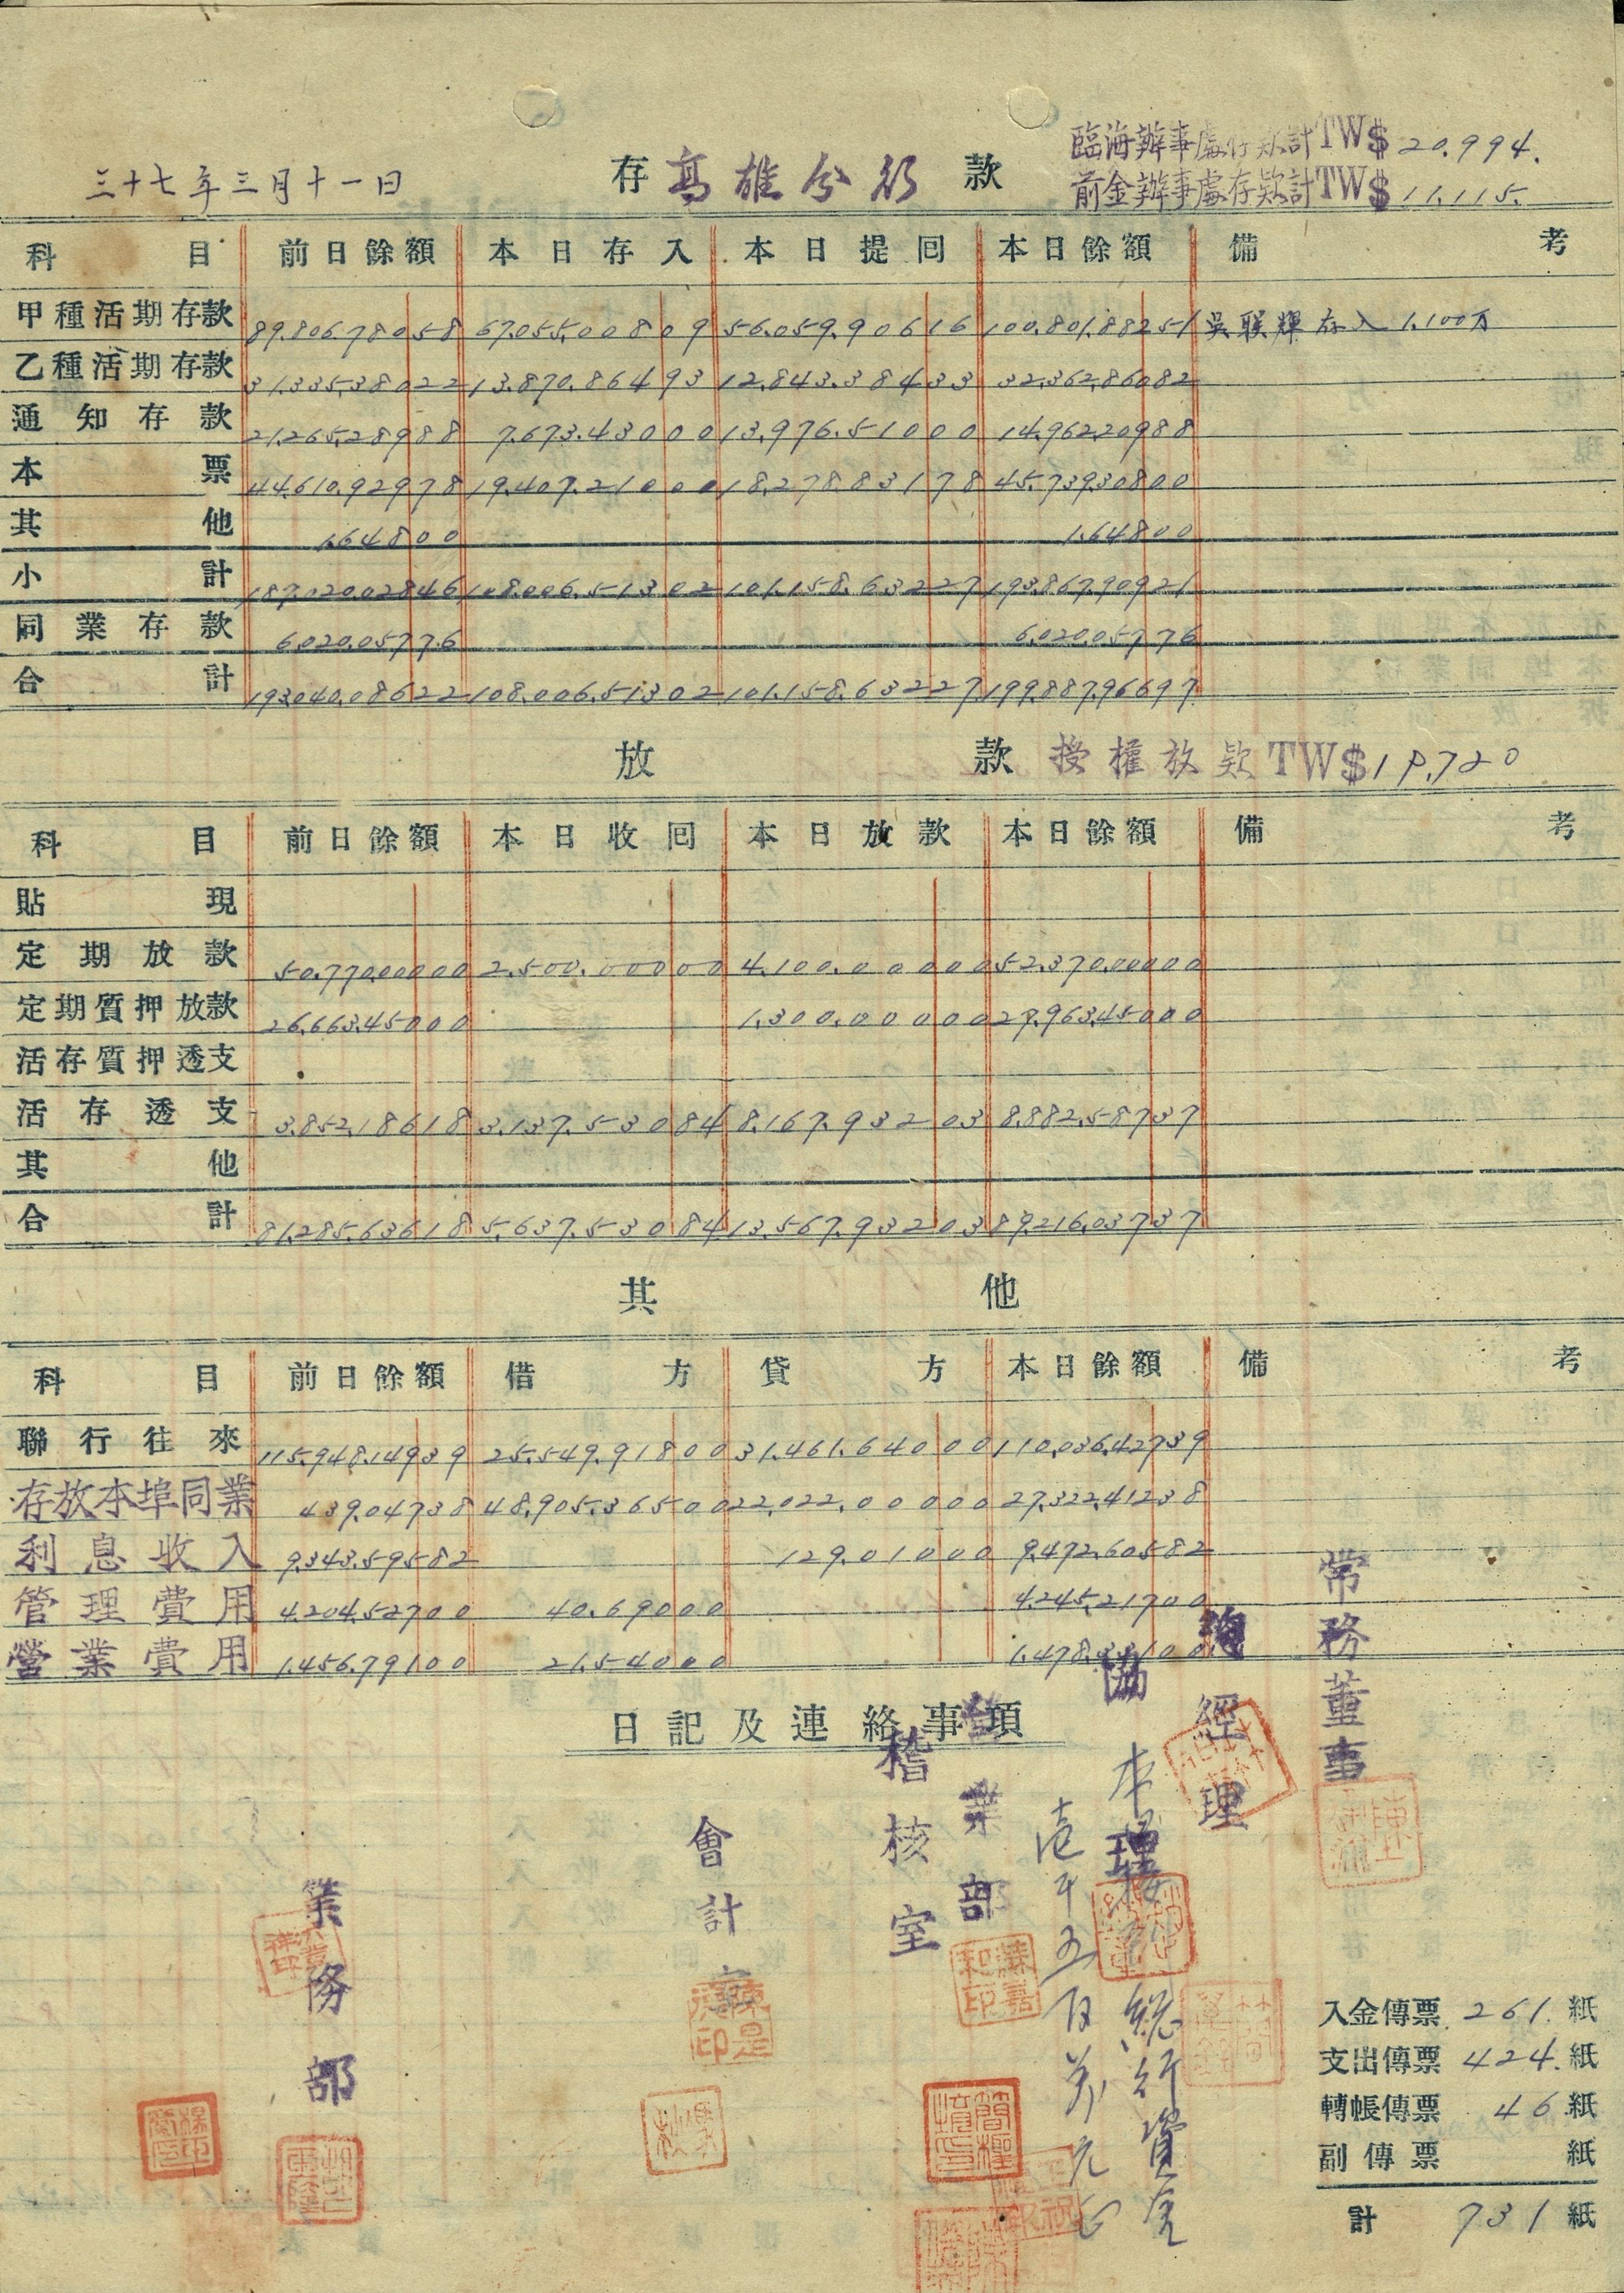 臨海辦事處存款計TW$20.994.
三十七年三月十一日 存 高雄分行 款 前金辦事處存款計TW$11.115.
科目 前日餘額 本日存入 本日提回 本日餘額 備考
甲種活期存款 89.806.780 58 67.055.008 09 56.059.906 16 100.801.882 51 吳联輝存入1.100万
乙種活期存款 31.335.380 22 13.870.864 93 12.843.384 33 32.362.860 82
通知存款 21.265.289 88 7.673.430 00 13.976.510 00 14.962.209 88
本票 44.610.929 78 19.407.210 00 18.278.831 78 45.739.308 00
其他 1.648 00 1.648 00
小計 187.020.028 46 108.006.513 02 101.158.632 27 193.867.909 21
同業存款 6.020.057 76 6.020.057 76
合計 193.040.086 22 108.006.513 02 101.158.632 27 199.887.966 97
放款 授權放款TW$19.720
科目 前日餘額 本日收回 本日放款 本日餘額 備考
貼現
定期放款 50.770.000 00 2.500.000 00 4.100.000 00 52.370.000 00
定期質押放款 26.663.450 00 1.300.000 00 27.963.450 00
活存質押透支
活存透支 3.852.186 18 3.137.530 84 8.167.932 03 8.882.587 37
其他
合計 81.285.636 18 5.637.530 84 13.567.932 03 89.216.037 37
其他
科目 前日餘額 借方 貸方 本日餘額 備考
聯行往來 115.948.149 39 25.549.918 00 31.461.640 00 110.036.427 39
存放本埠同業 439.047 38 48.905.365 00 22.022.000 00 27.322.412 38
利息收入 9.343.595 82 129.010 00 9.472.605 82
管理費用 4.204.527 00 40.690 00 4.245.217 00
營業費用 1.456.791 00 21.540 00 1.478.331 00
日記及連絡事項
常務董事
總經理
協理
本日接總行資金
壱千五百萬元也
業部
稽核室
會計
業務部
入金傳票 261. 紙
支出傳票 424. 紙
轉帳傳票 46 紙
副傳票 紙
計 731 紙